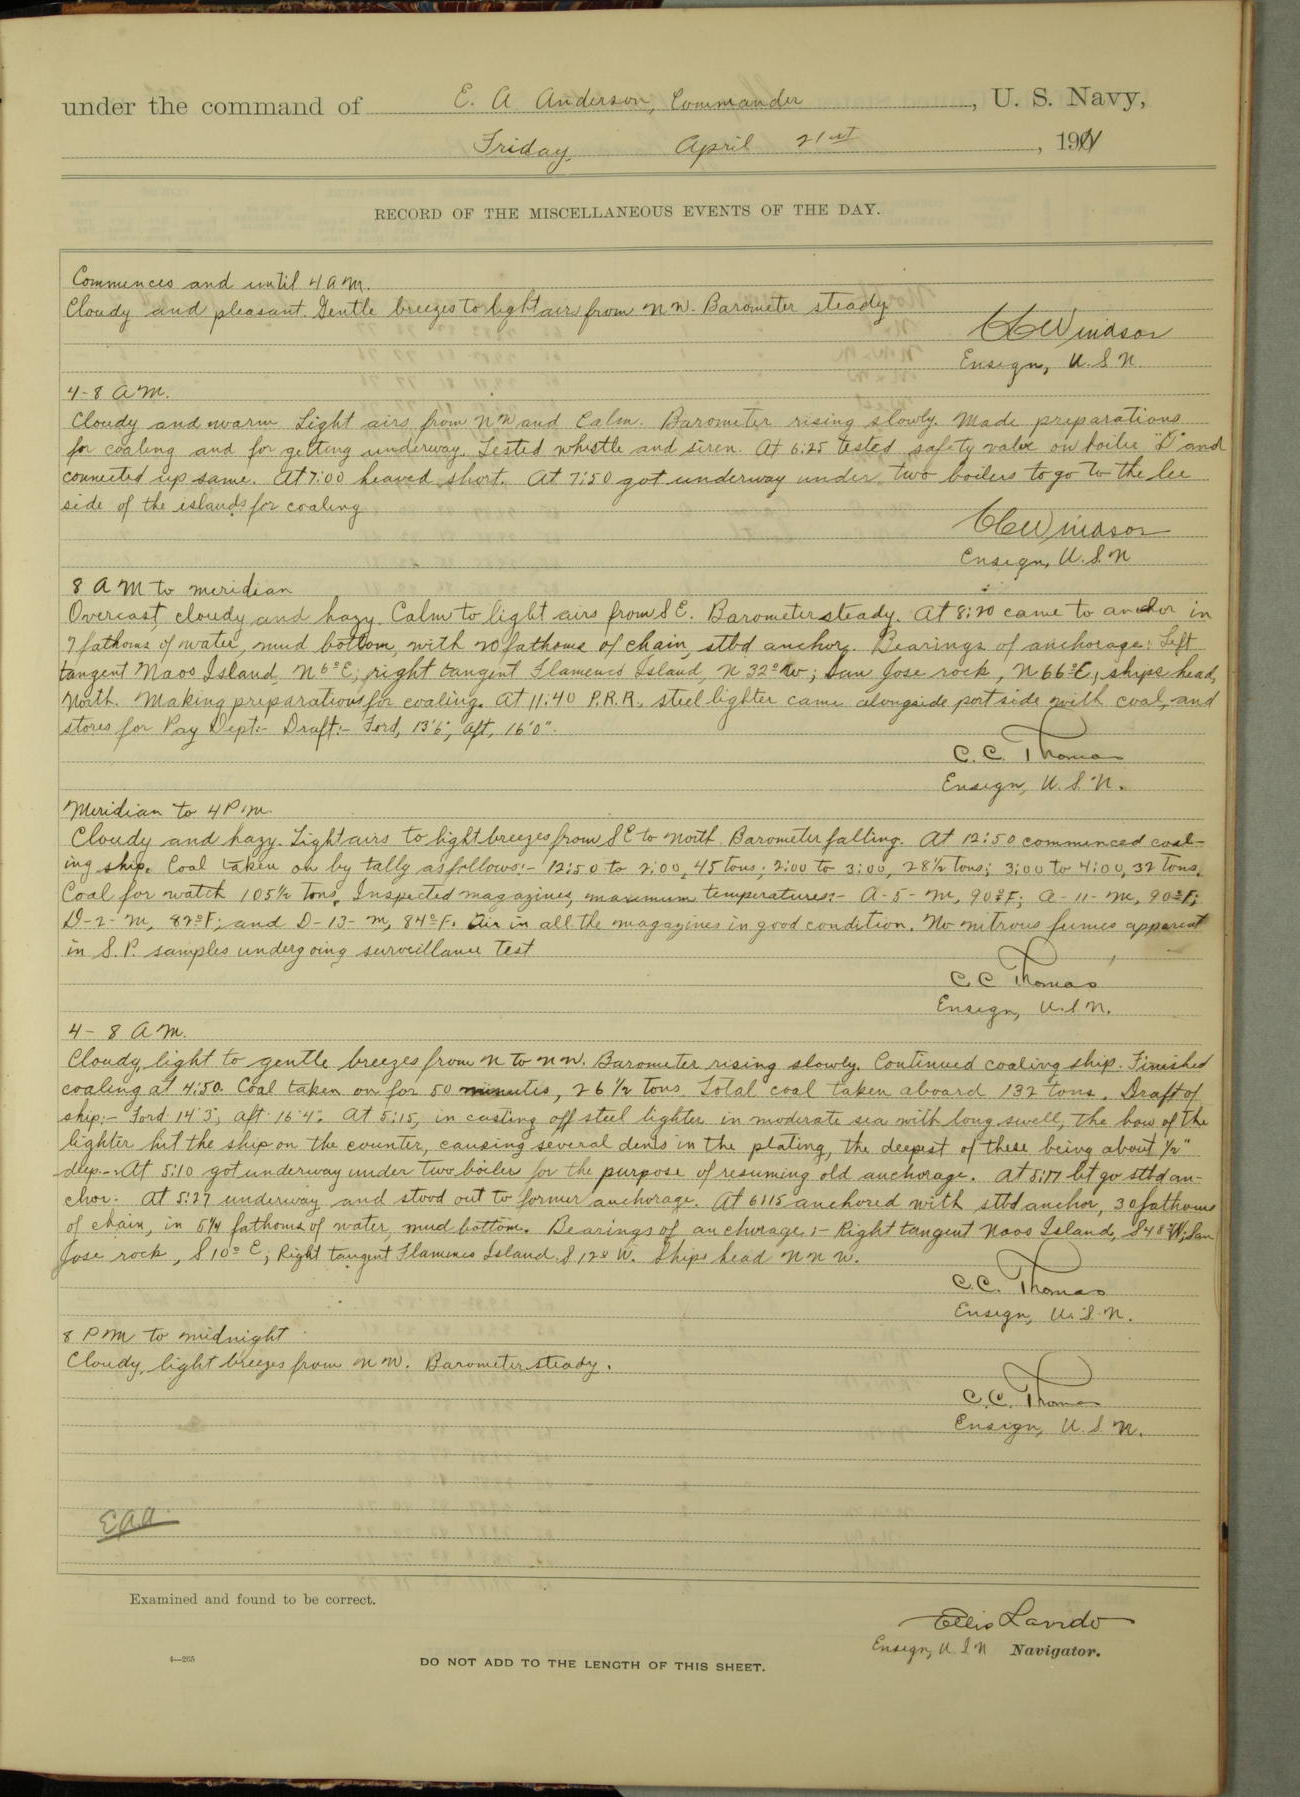 under the command of E. A. Anderson, Commander, U. S. Navy,
Friday, April 21st, 1911
RECORD OF THE MISCELLANEOUS EVENTS OF THE DAY.
Commences and until 4 A.M.
Cloudy and pleasant. Gentle breezes to light airs from N.W. Barometer steady
Windsor
Ensign, U.S.N.
4-8 A.M.
Cloudy and warm. Light airs from NW and Calm. Barometer rising slowly. Made preparations
for coaling and for getting underway. Tested whistle and siren. At 6:25 tested safety valve on boiler "D" and
connected up same. At 7:00 heaved short. At 7:50 got underway under two boilers to go to the lee
side of the islands for coaling
Windsor
Ensign, U.S.N
8 A M to meridian
Overcast, cloudy and hazy. Calm to light airs from S E. Barometer steady. At 8:20 came to anchor in
7 fathoms of water, mud bottom, with 20 fathoms of chain, stbd anchor. Bearings of anchorage: Left
tangent Naos Island, N 6° E; right tangent Flamenco Island, N 32° W; San Jose rock, N 66° E; ships head,
North. Making preparations for coaling. At 11:40 P.R.R. steel lighter came alongside port side with coal, and
stores for Pay Dept:- Draft:- Ford, 13'6", aft, 16'0".
C. C. Thomas
Ensign, U.S.N.
Meridian to 4 P.M.
Cloudy and hazy. Light airs to light breezes from S E to North. Barometer falling. At 12:50 commenced coal-
ing ship. Coal taken on by tally as follows:- 12:50 to 2:00, 45 tons; 2:00 to 3:00, 28½ tons; 3:00 to 4:00, 32 tons.
Coal for watch 105½ tons. Inspected magazines, maximum temperatures:- A-5-M, 90°F; A-11-M, 90°F;
D-2-M, 82°F; and D-13-M, 84°F. Air in all the magazines in good condition. No nitrous fumes apparent
in S.P. samples undergoing surveillance test
C. C. Thomas
Ensign, U.S.N.
4 - 8 A M.
Cloudy, light to gentle breezes from N to NNW. Barometer rising slowly. Continued coaling ship. Finished
coaling at 4:50. Coal taken on for 50 minutes, 26½ tons. Total coal taken aboard 132 tons. Draft of
ship:- Ford 14'3", aft 16'4". At 5:15, in casting off steel lighter in moderate sea with long swell, the bow of the
lighter hit the ship on the counter, causing several dents in the plating, the deepest of these being about ½"
deep. At 5:10 got underway under two boiler for the purpose of resuming old anchorage. At 5:17 let go stbd an-
chor. At 5:27 underway and stood out to former anchorage. At 6:15 anchored with stbd anchor, 30 fathoms
of chain, in 5¼ fathoms of water, mud bottom. Bearings of anchorage:- Right tangent Naos Island, S 48° W; San
Jose rock, S 10° E; Right tangent Flamenco Island, S 12° W. Ships head N N W.
C.C. Thomas
Ensign, U.S.N.
8 P M to midnight
Cloudy, light breezes from N W. Barometer steady.
C.C. Thomas
Ensign, U.S.N.
E.A.A.
Examined and found to be correct.
Ellis Lando
Ensign, U S N Navigator.
4—265
DO NOT ADD TO THE LENGTH OF THIS SHEET.